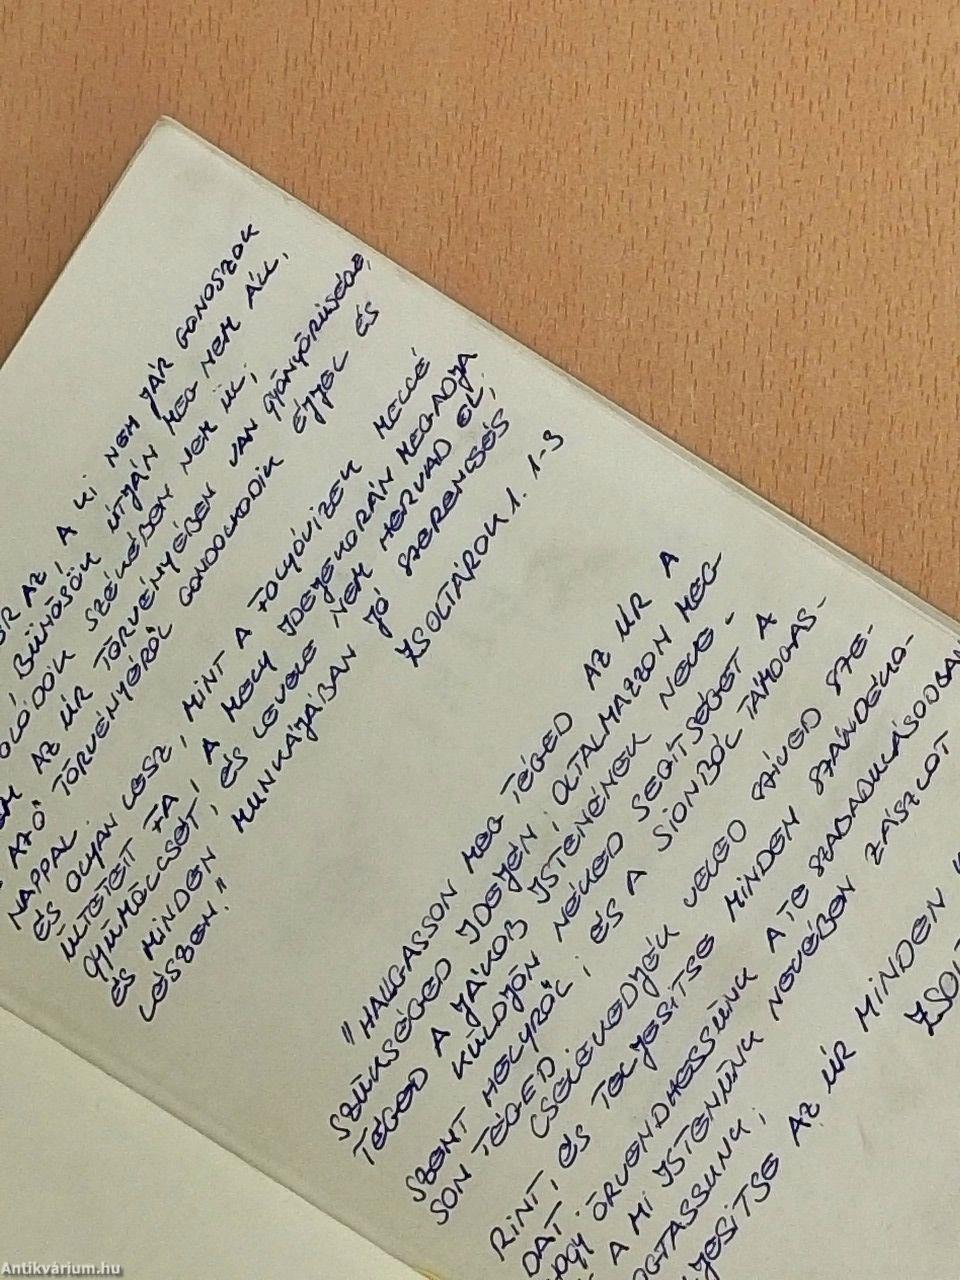 AZ, A KI NEM JÁR GONOSZOK
BŰNÖSÖK ÚTJÁN MEG NEM ÁLL,
SZÉKÉBEN NEM ÜL;
AZ ÚR TÖRVÉNYÉBEN VAN GYÖNYÖRŰSÉGE,
AZ Ő TÖRVÉNYÉRŐL GONDOLKODIK ÉJJEL ÉS
NAPPAL.
ÉS OLYAN LESZ, MINT A FOLYÓVIZEK MELLÉ
ÜLTETETT FA, A MELY IDEJEKORÁN MEGADJA
GYÜMÖLCSÉT, ÉS LEVELE NEM HERVAD EL;
ÉS MINDEN MUNKÁJÁBAN JÓ SZERENCSÉS
LÉSZEN."
ZSOLTÁROK 1. 1-3
"HALLGASSON MEG TÉGED AZ ÚR A
SZÜKSÉGED IDEJÉN; OLTALMAZZON MEG
TÉGED A JÁKÓB ISTENÉNEK NEVE-
KÜLDJÖN NÉKED SEGÍTSÉGET A
SZENT HELYRŐL; ÉS A SIONBÓL TÁMOGAS-
SON TÉGED
CSELEKEDJÉK VELED SZÍVED SZE-
RINT, ÉS TELJESITSE MINDEN SZÁNDÉKO-
DAT.
HOGY ÖRVENDHESSÜNK A TE SZABADULÁSODBAN
A MI ISTENÜNK NEVÉBEN ZÁSZLÓT
AZ ÚR MINDEN
Antikvárium.hu